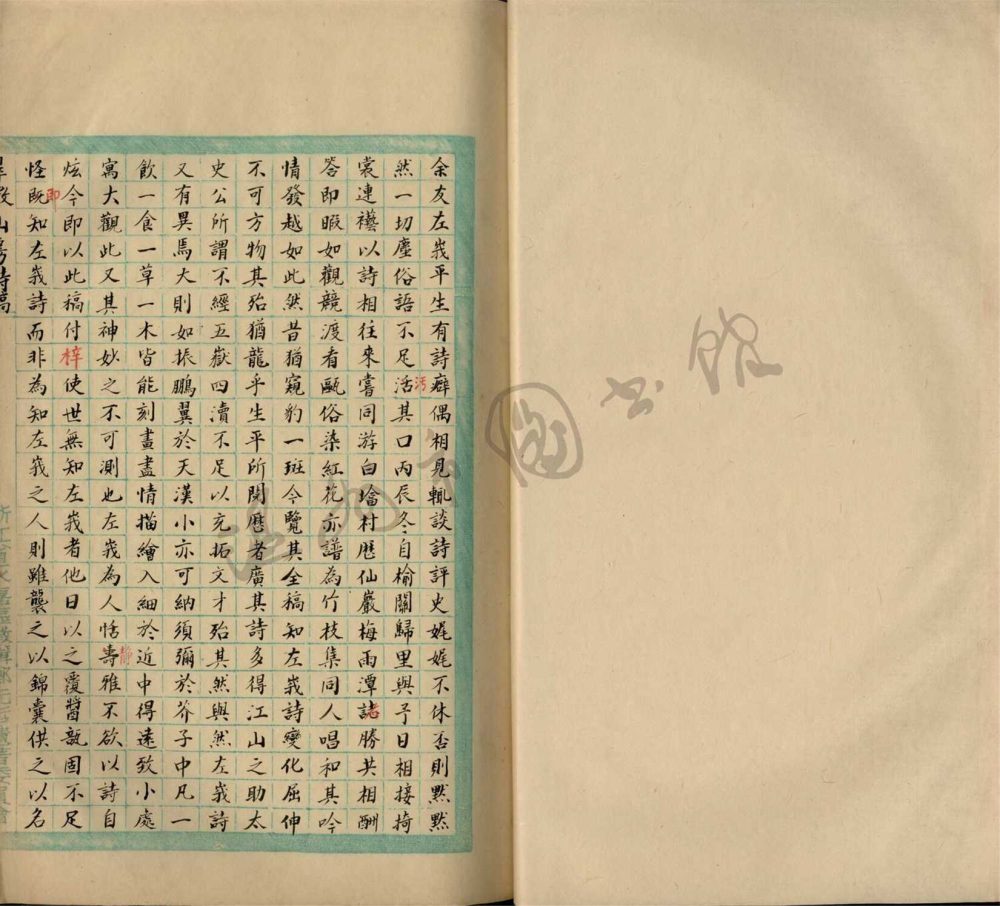 余友左峩平生有詩癖偶相見輒談詩評史娓娓不休否則默默
然一切塵俗語不足活其口丙辰冬自榆關歸里與予日相接掎
裳連襼以詩相往來嘗同游白墖村歷仙巖梅雨潭諸勝共相酬
答即暇如觀競渡看甌俗染紅花亦譜為竹枝集同人唱和其吟
情發越如此然昔猶窺豹一斑今覽其全稿知左峩詩變化屈伸
不可方物其殆猶龍乎生平所閱歷者廣其詩多得江山之助太
史公所謂不經五嶽四瀆不足以充拓文才殆其然與然左峩詩
又有異焉大則如振鵬翼於天漢小亦可納須彌於芥子中凡一
飲一食一草一木皆能刻畫盡情描繪入細於近中得遠致小處
寓大觀此又其神妙之不可測也左峩為人恬壽雅不欲以詩自
炫今即以此稿付梓使世無知左峩者他日以之覆醬瓿固不足
怪既知左峩詩而非為知左峩之人則雖襲之以錦囊供之以名
山房詩稿
汚
老
靜
即
圖書館